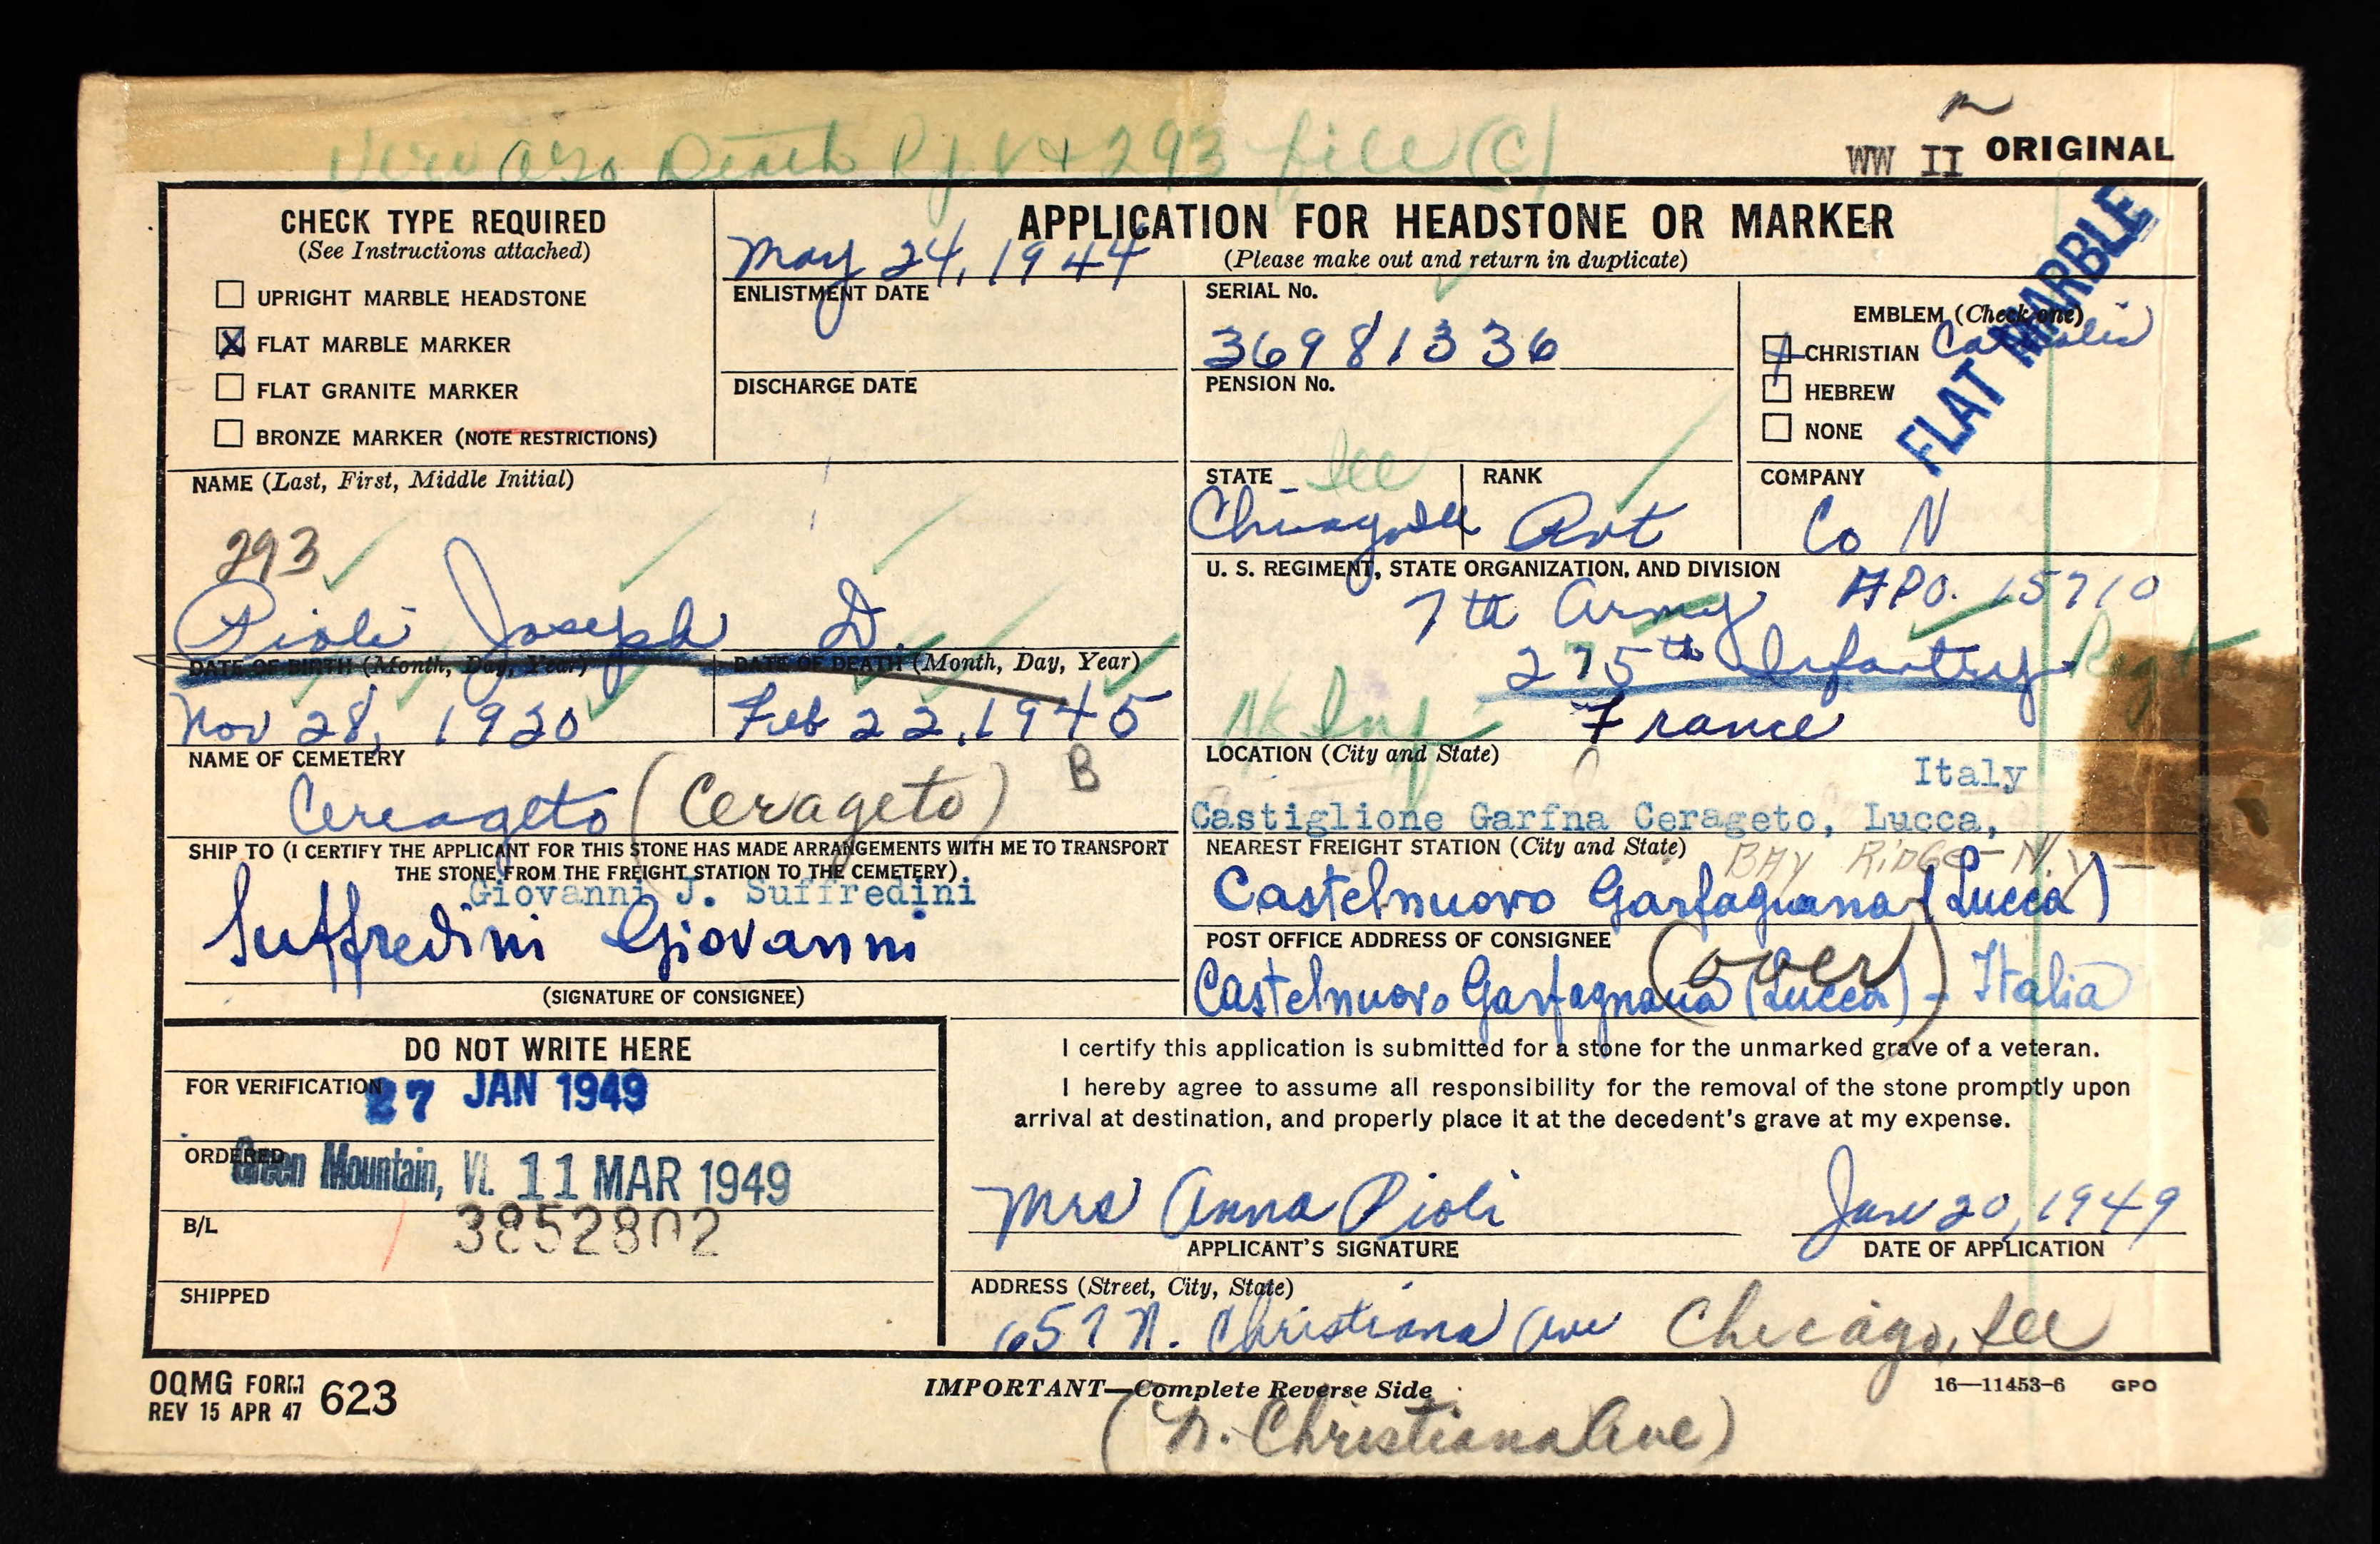 Death 293 file (C)
WW II ORIGINAL
CHECK TYPE REQUIRED
(See Instructions attached)
UPRIGHT MARBLE HEADSTONE
X FLAT MARBLE MARKER
FLAT GRANITE MARKER
BRONZE MARKER (NOTE RESTRICTIONS)
APPLICATION FOR HEADSTONE OR MARKER
(Please make out and return in duplicate)
May 24, 1944
ENLISTMENT DATE
DISCHARGE DATE
SERIAL No.
36981336
PENSION No.
EMBLEM (Check one)
CHRISTIAN Catholic
HEBREW
NONE
FLAT MARBLE
NAME (Last, First, Middle Initial)
293
Pioli Joseph D.
STATE Ill
Chicago Ill
RANK
Pvt
COMPANY
Co N
U. S. REGIMENT, STATE ORGANIZATION, AND DIVISION
7th Army APO. 15710
275th Infantry Regt
France
DATE OF BIRTH (Month, Day, Year)
Nov 28, 1920
DATE OF DEATH (Month, Day, Year)
Feb 22, 1945
NAME OF CEMETERY
Cereageto (Cerageto) B
LOCATION (City and State)
Italy
Castiglione Garfna Cerageto, Lucca,
SHIP TO (I CERTIFY THE APPLICANT FOR THIS STONE HAS MADE ARRANGEMENTS WITH ME TO TRANSPORT
THE STONE FROM THE FREIGHT STATION TO THE CEMETERY)
Giovanni J. Suffredini
Suffredini Giovanni
(SIGNATURE OF CONSIGNEE)
NEAREST FREIGHT STATION (City and State) BAY RIDGE - N.Y -
Castelnuovo Garfagnana (Lucca)
POST OFFICE ADDRESS OF CONSIGNEE
(over)
Castelnuovo Garfagnana (Lucca) - Italia
DO NOT WRITE HERE
FOR VERIFICATION
27 JAN 1949
ORDERED
Green Mountain, Vt. 11 MAR 1949
B/L
3852802
SHIPPED
I certify this application is submitted for a stone for the unmarked grave of a veteran.
I hereby agree to assume all responsibility for the removal of the stone promptly upon
arrival at destination, and properly place it at the decedent's grave at my expense.
Mrs Anna Pioli
APPLICANT'S SIGNATURE
Jan 20, 1949
DATE OF APPLICATION
ADDRESS (Street, City, State)
657 N. Christiana Ave Chicago, Ill
OQMG FORM 623
REV 15 APR 47
IMPORTANT—Complete Reverse Side
16—11453-6 GPO
(N. Christiana Ave)